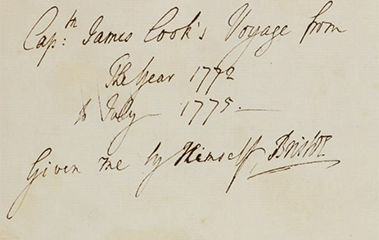 Cap:tn James Cook's Voyage from
The Year 1772
to July 1775.—
Given me by Himself Bristol